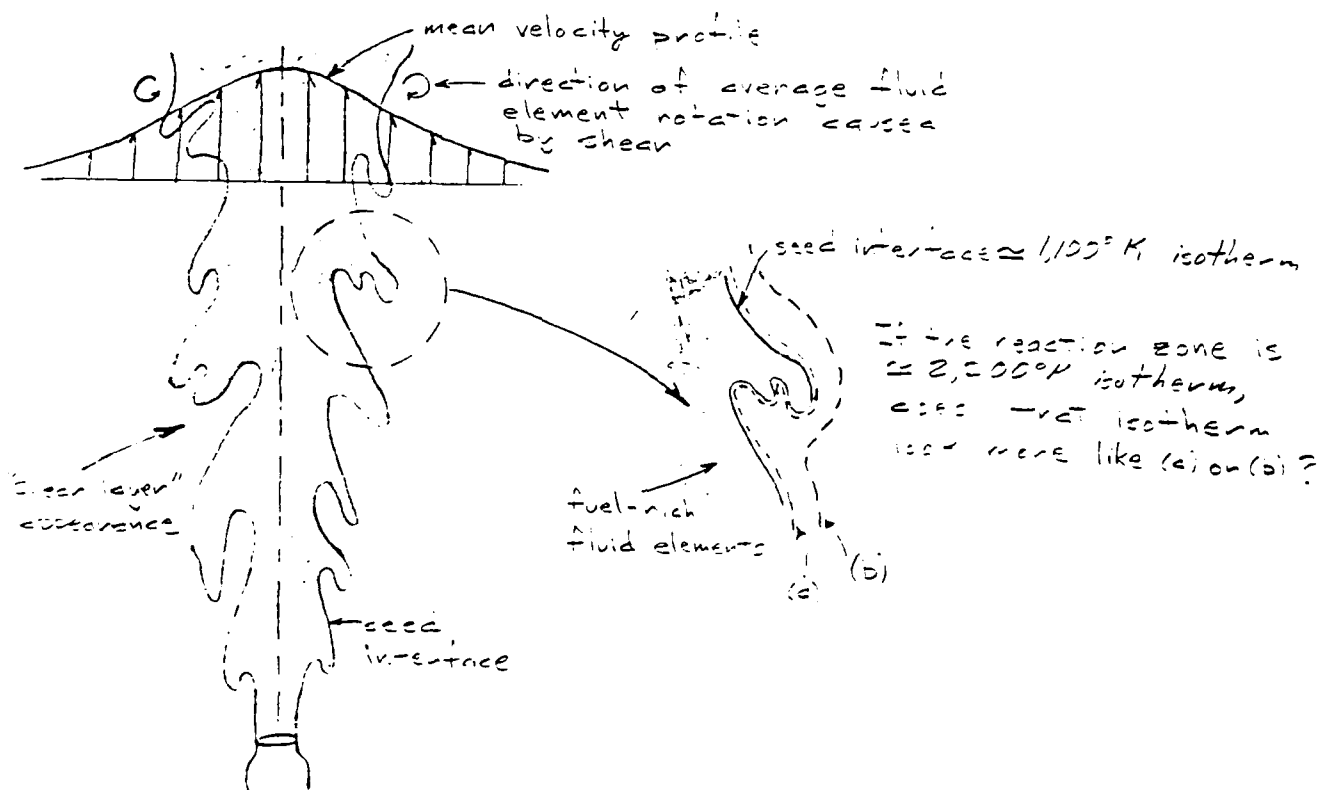 mean velocity profile
direction of average fluid
element rotation caused
by shear
seed interface ≃ 1,100°K isotherm
If the reaction zone is
≃ isotherm,
does that isotherm
look more like (a) or (b)?
"shear layer"
fuel-rich
fluid elements
(a)
(b)
seed
interface